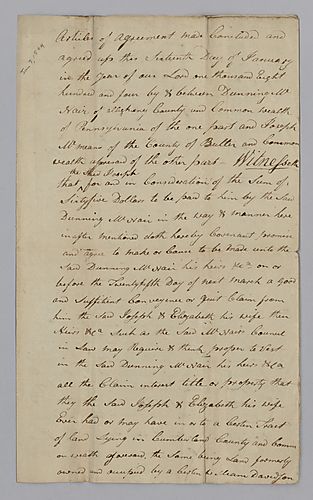 Articles of agreement made Concluded and
agreed upo this Sixteenth Day of January
in the year of our Lord one thousand Eight
hundred and four by & between Dunning Mc
Nair of Alleghany County and Common wealth
of Pennsylvania of the one part and Joseph
Mc of the County of Butler and Common
wealth aforesaid of the other part Witnesseth
the Said Joseph
that for and in Consideration of the Sum of
Sixtyfive Dollars to be paid to him by the Said
Dunning McNair in the way & manner here
in after mentioned doth hereby Covenant promise
and agree to make or Cause to be made unto the
Said Dunning McNair his heirs &ca on or
before the Twentyfifth Day of next March a Good
and Suffitient Conveyence or Quit Claim from
him the Said Joseph & Elizabeth his wife their
Heirs &ca Such as the Said McNairs Council
in Law may Require & think proper to Vest
in the Said Dunning McNair his heirs &ca
all the Claim interest title or property that
they the Said Joseph & Elizabeth his wife
Ever had or may have in or to a Certain Tract
of Land Lying in Cumberland County and Common
wealth aforesaid, the Same being Land formerly
owned and occupied by a Certain Davidson